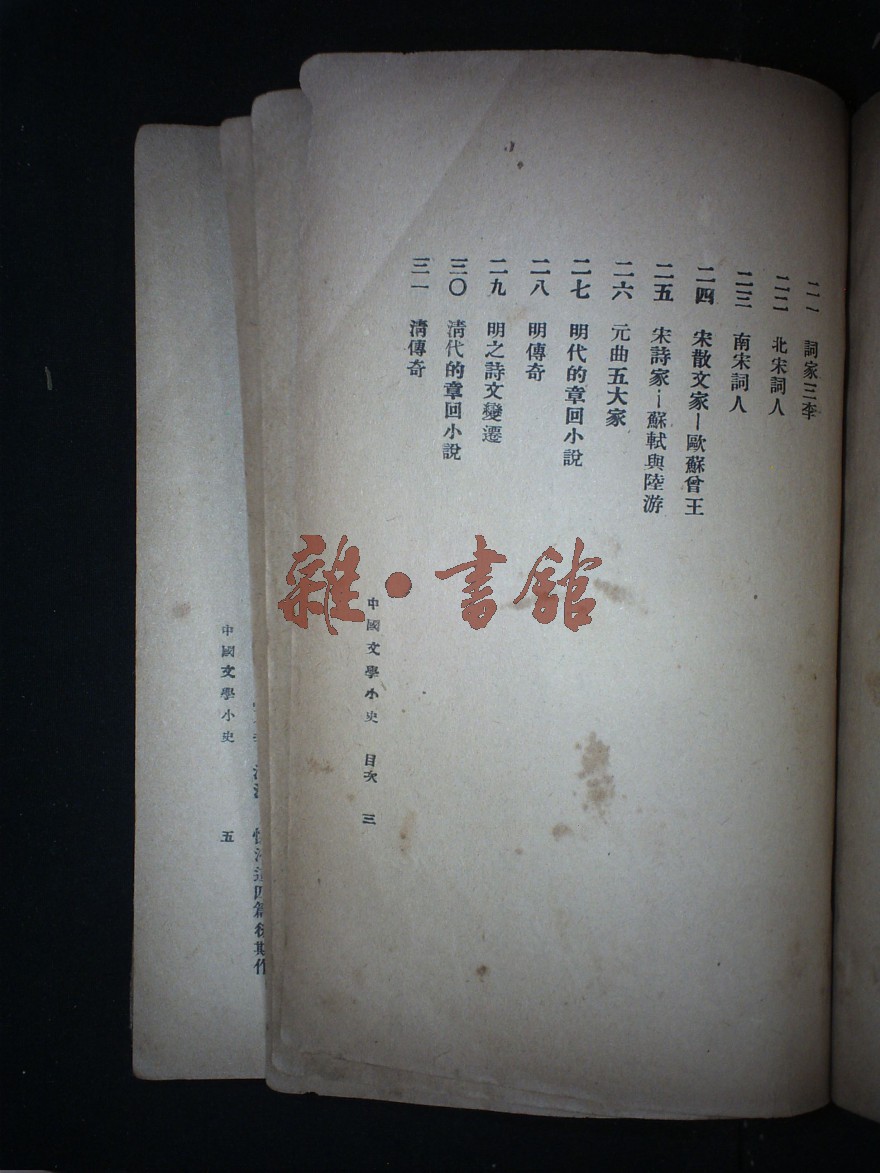 二一　詞家三李
二二　北宋詞人
二三　南宋詞人
二四　宋散文家—歐蘇曾王
二五　宋詩家—蘇軾與陸游
二六　元曲五大家
二七　明代的章回小說
二八　明傳奇
二九　明之詩文變遷
三〇　清代的章回小說
三一　清傳奇
中國文學小史　目次　三
雜·書館
中國文學小史　五